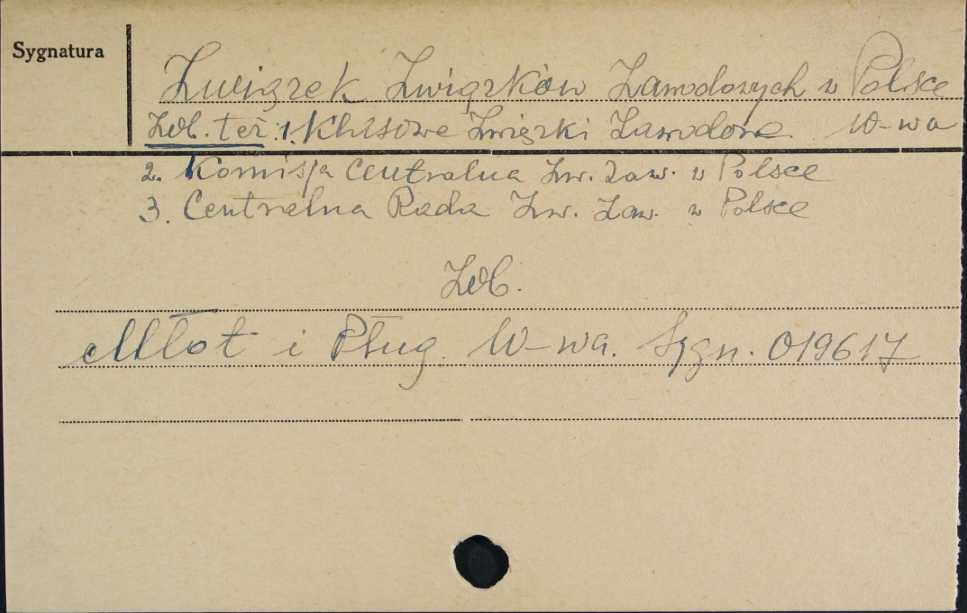 Sygnatura
Związek Związków Zawodowych w Polsce
Zob. też: 1. Klasowe Związki Zawodowe W-wa
2. Komisja Centralna Zw. Zaw. w Polsce
3. Centralna Rada Zw. Zaw. w Polsce
Zob.
Młot i Pług. W-wa. Sygn. 019617